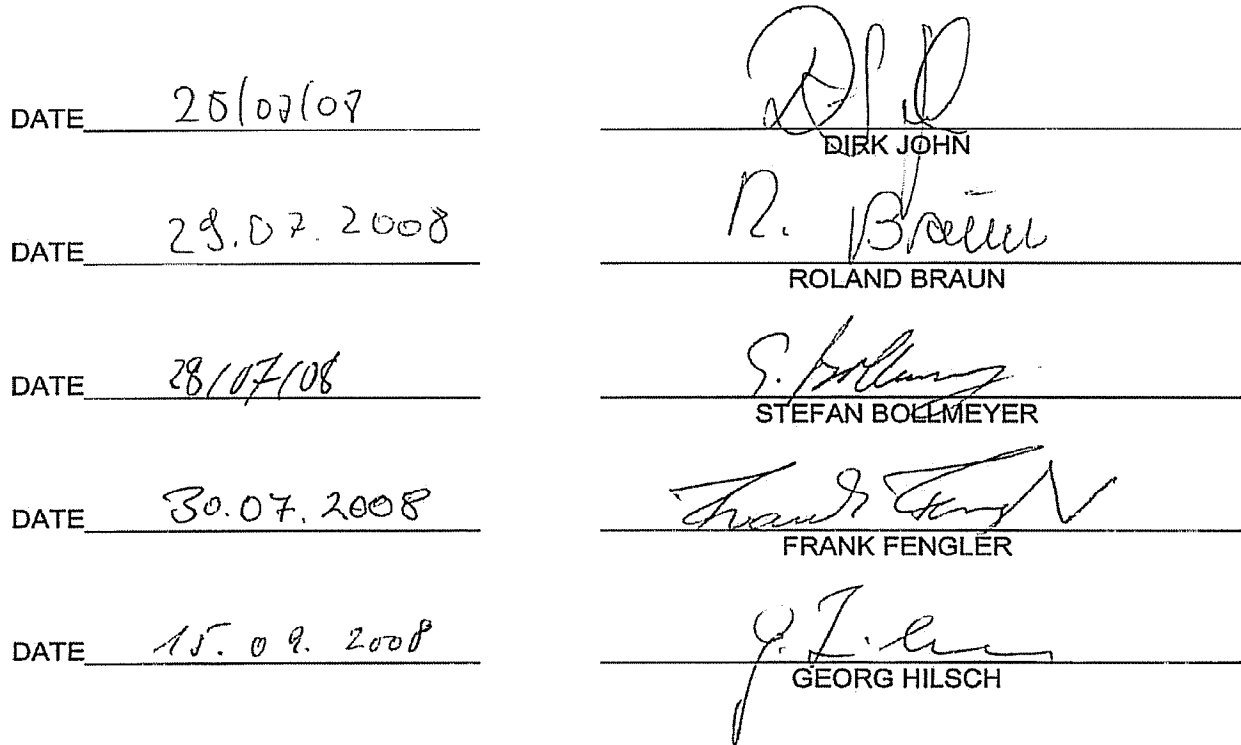 DATE 28/07/08
DIRK JOHN
DATE 29.07.2008 R. Braun
ROLAND BRAUN
DATE 28/07/08 S. Bollmeyer
STEFAN BOLLMEYER
DATE 30.07.2008 Frank Fengler
FRANK FENGLER
DATE 15.09.2008
GEORG HILSCH